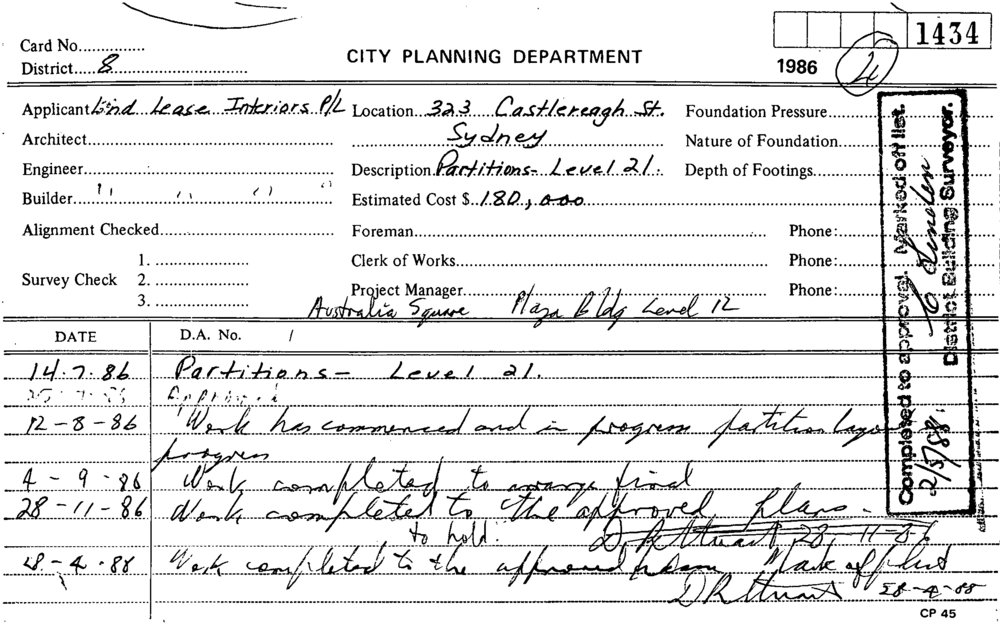 Card No...............
CITY PLANNING DEPARTMENT
1434
District.....8
1986
4
Applicant Lend Lease Interiors P/L Location 323 Castlereagh St. Foundation Pressure
Architect Sydney Nature of Foundation
Engineer Description Partitions- Level 21. Depth of Footings
Builder " " " " Estimated Cost $ 180,000
Alignment Checked Foreman Phone:
1.
Clerk of Works Phone:
Survey Check 2.
3.
Project Manager Phone:
Australia Square Plaza Bldg Level 12
Completed to approval. Marked off list.
2/5/88
District Building Surveyor.
DATE D.A. No. /
14.7.86 Partitions- Level 21.
Approved
12-8-86 Work has commenced and in progress partition layout
progress
4-9-86 Work completed to arrange final
28-11-86 Work completed to the approved plans -
to hold. 28-11-86
28-4-88 Work completed to the approved plans Mark off plut
D R Stuart 28-4-88
CP 45